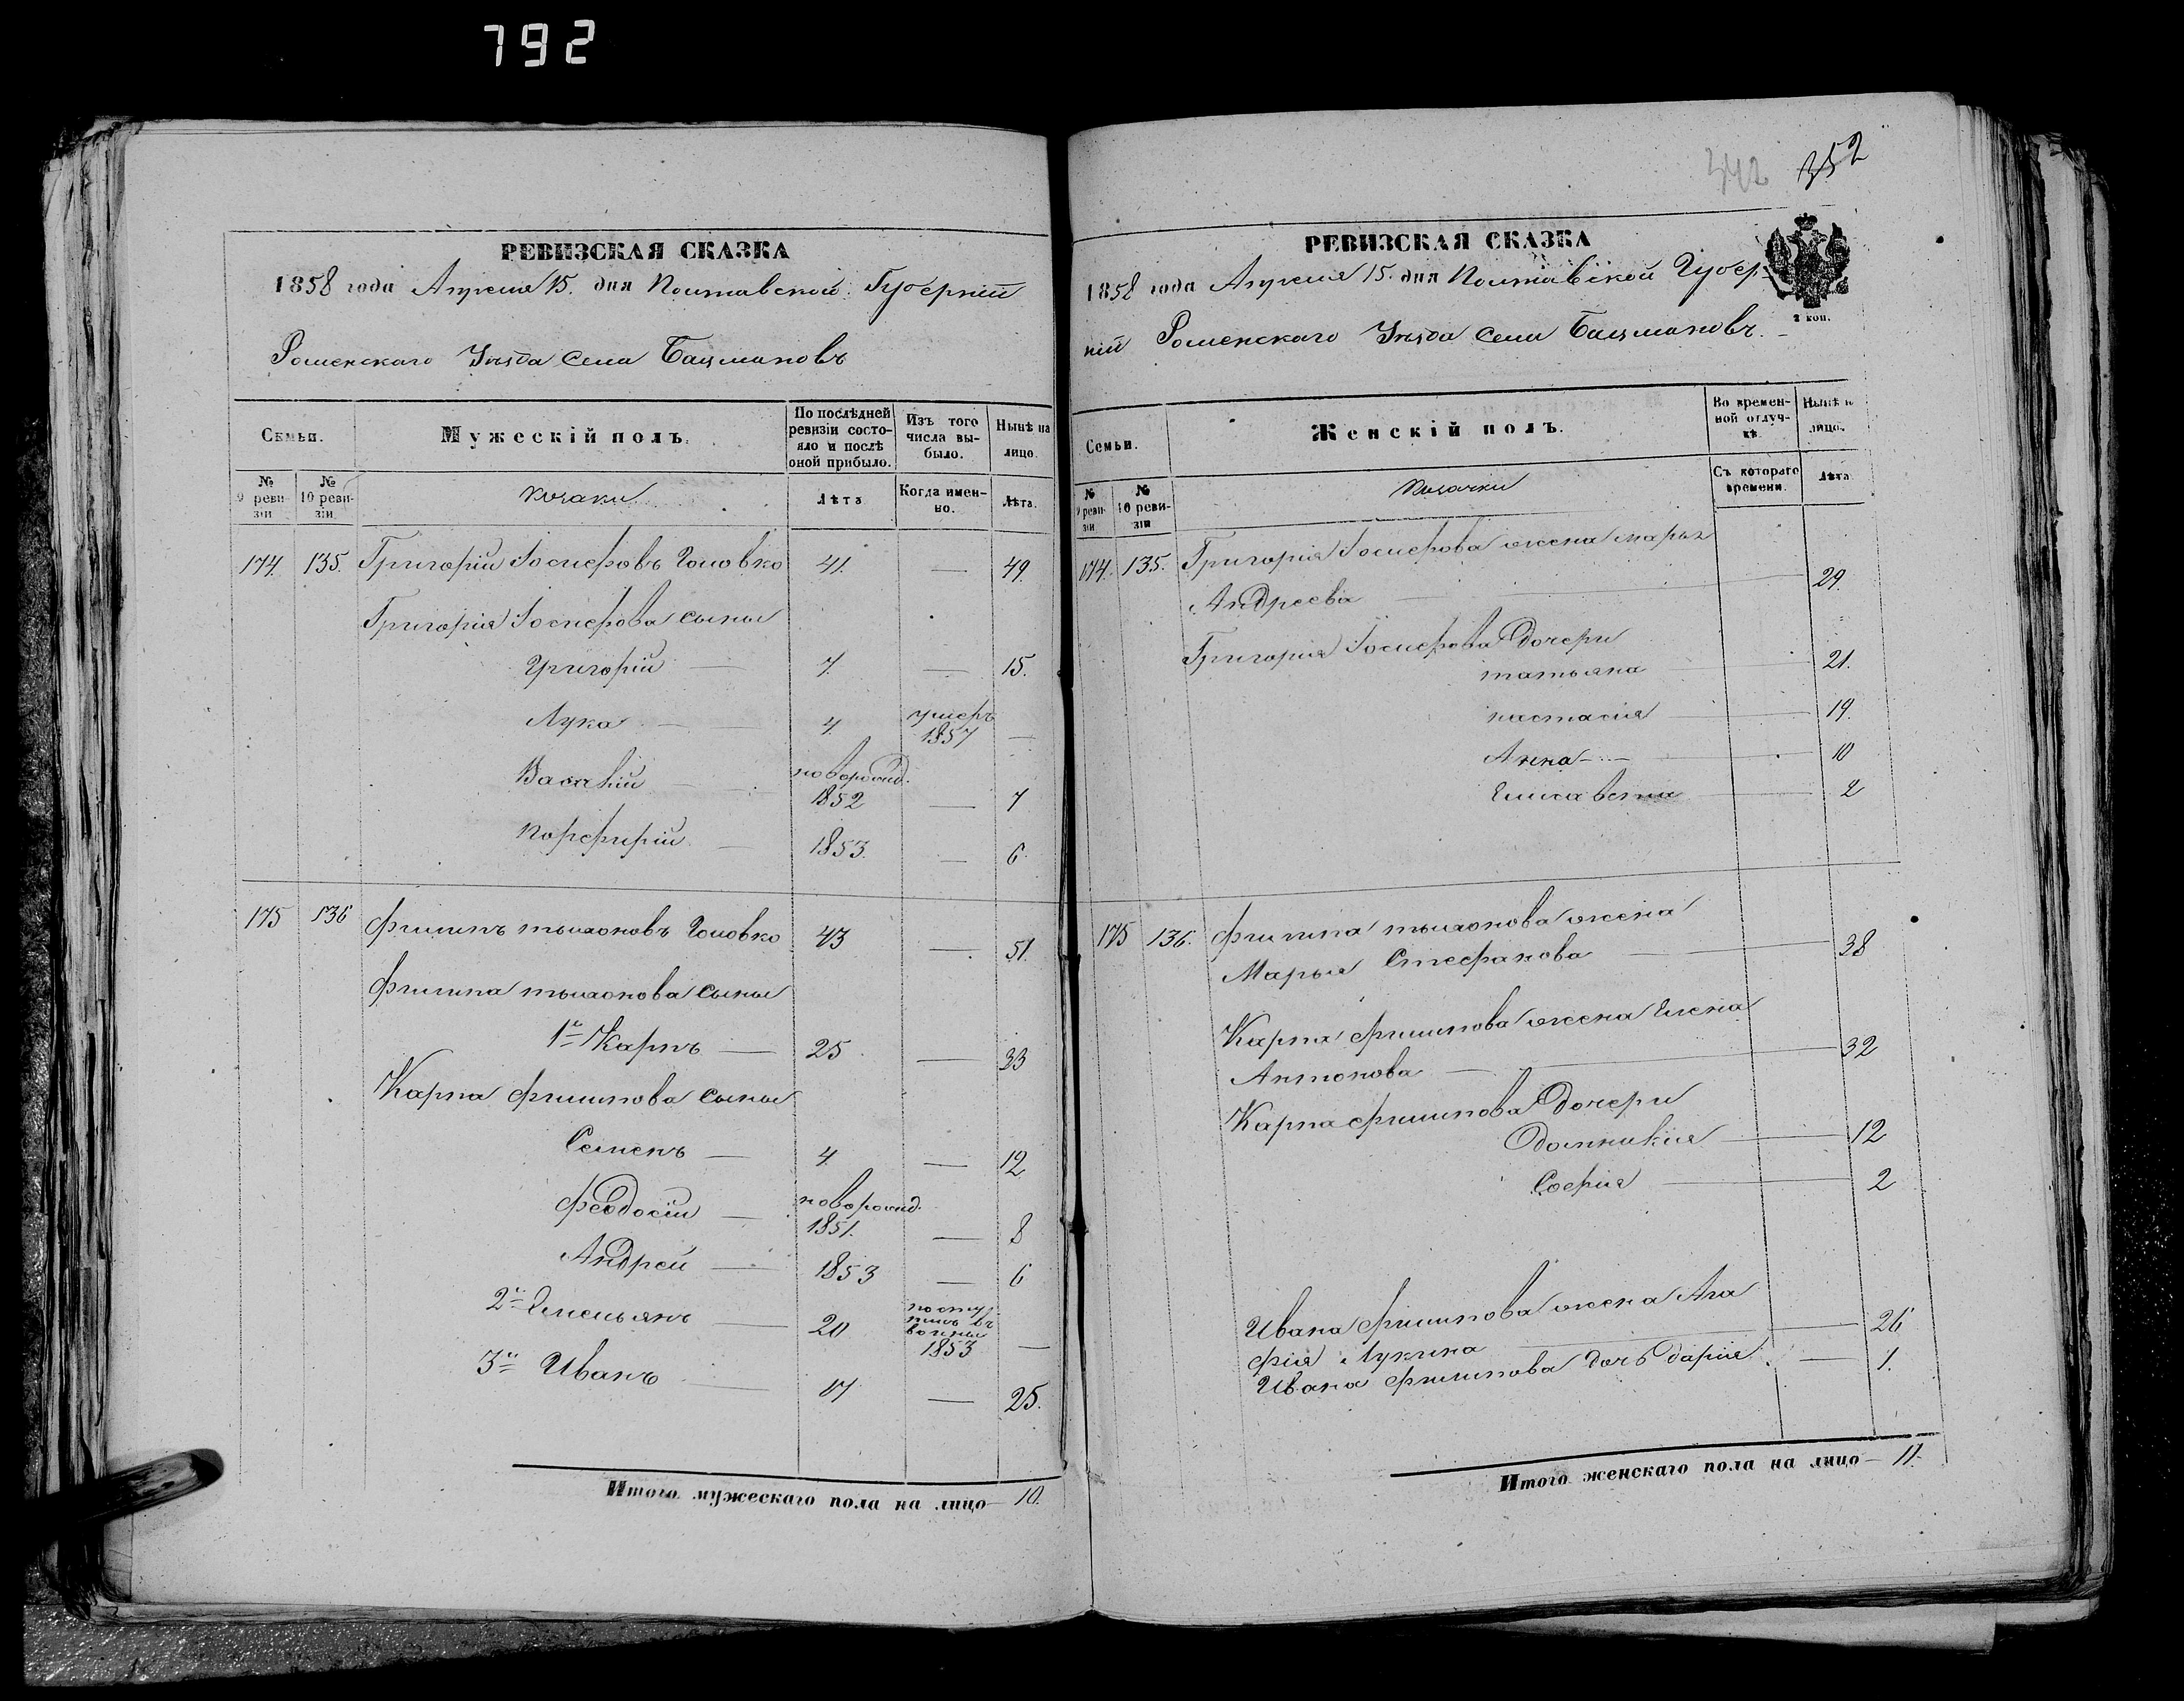 792
РЕВИЗСКАЯ СКАЗКА
1858 года Апреля 15. дня Полтавской Губерніи
Роменскаго Уѣзда Села Бацмановъ
Семьи.
Мужескій полъ.
По послѣдней ревизіи состояло и послѣ оной прибыло.
Изъ того числа выбыло.
Нынѣ на лицо.
№ 9 ревизіи
№ 10 ревизіи
Козаки
Лѣта
Когда именно.
Лѣта.
174. 135. Григорій Іосифовъ Головко 41. — 49.
Григорія Іосифова сыны
Григорій — 7. — 15.
Лука — 4. умеръ 1857 —
Василій — новорожд. 1852 — 7
Порфирій — 1853. — 6.
175 136 Филипъ Тымоновъ Головко 43 — 51.
Филипа Тымонова сыны
1й Карпъ — 25 — 33
Карпа Филипова сыны
Семенъ — 4. — 12
Феодосій — новорожд. 1851. — 8
Андрей — 1853 — 6
2й Емельянъ — 20 поступилъ въ воины 1853 —
3й Иванъ 17 — 25.
Итого мужескаго пола на лицо — 10.
342 352
РЕВИЗСКАЯ СКАЗКА
2 коп.
1858 года Апреля 15. дня Полтавской Губер-
ніи Роменскаго Уѣзда Села Бацмановъ.
Семьи.
Женскій полъ.
Во временной отлучкѣ.
Нынѣ на лицо.
№ 9 ревизіи
№ 10 ревизіи
Козачки
Съ котораго времени.
Лѣта
174. 135. Григорія Іосифова жена Марья
Андреева — 29.
Григорія Іосифова Дочери
Татьяна 21.
Настасія — 19.
Анна — 10
Елисавета — 2
175 136. Филипа Тымонова жена
Марья Стефанова — 38
Карпа Филипова жена Елена
Антонова — 32
Карпа Филипова Дочери
Домникія — 12
Софія — 2
Ивана Филипова жена Ага
фія Лукина — 26
Ивана Филипова дочь Дарія — 1.
Итого женскаго пола на лицо — 11.